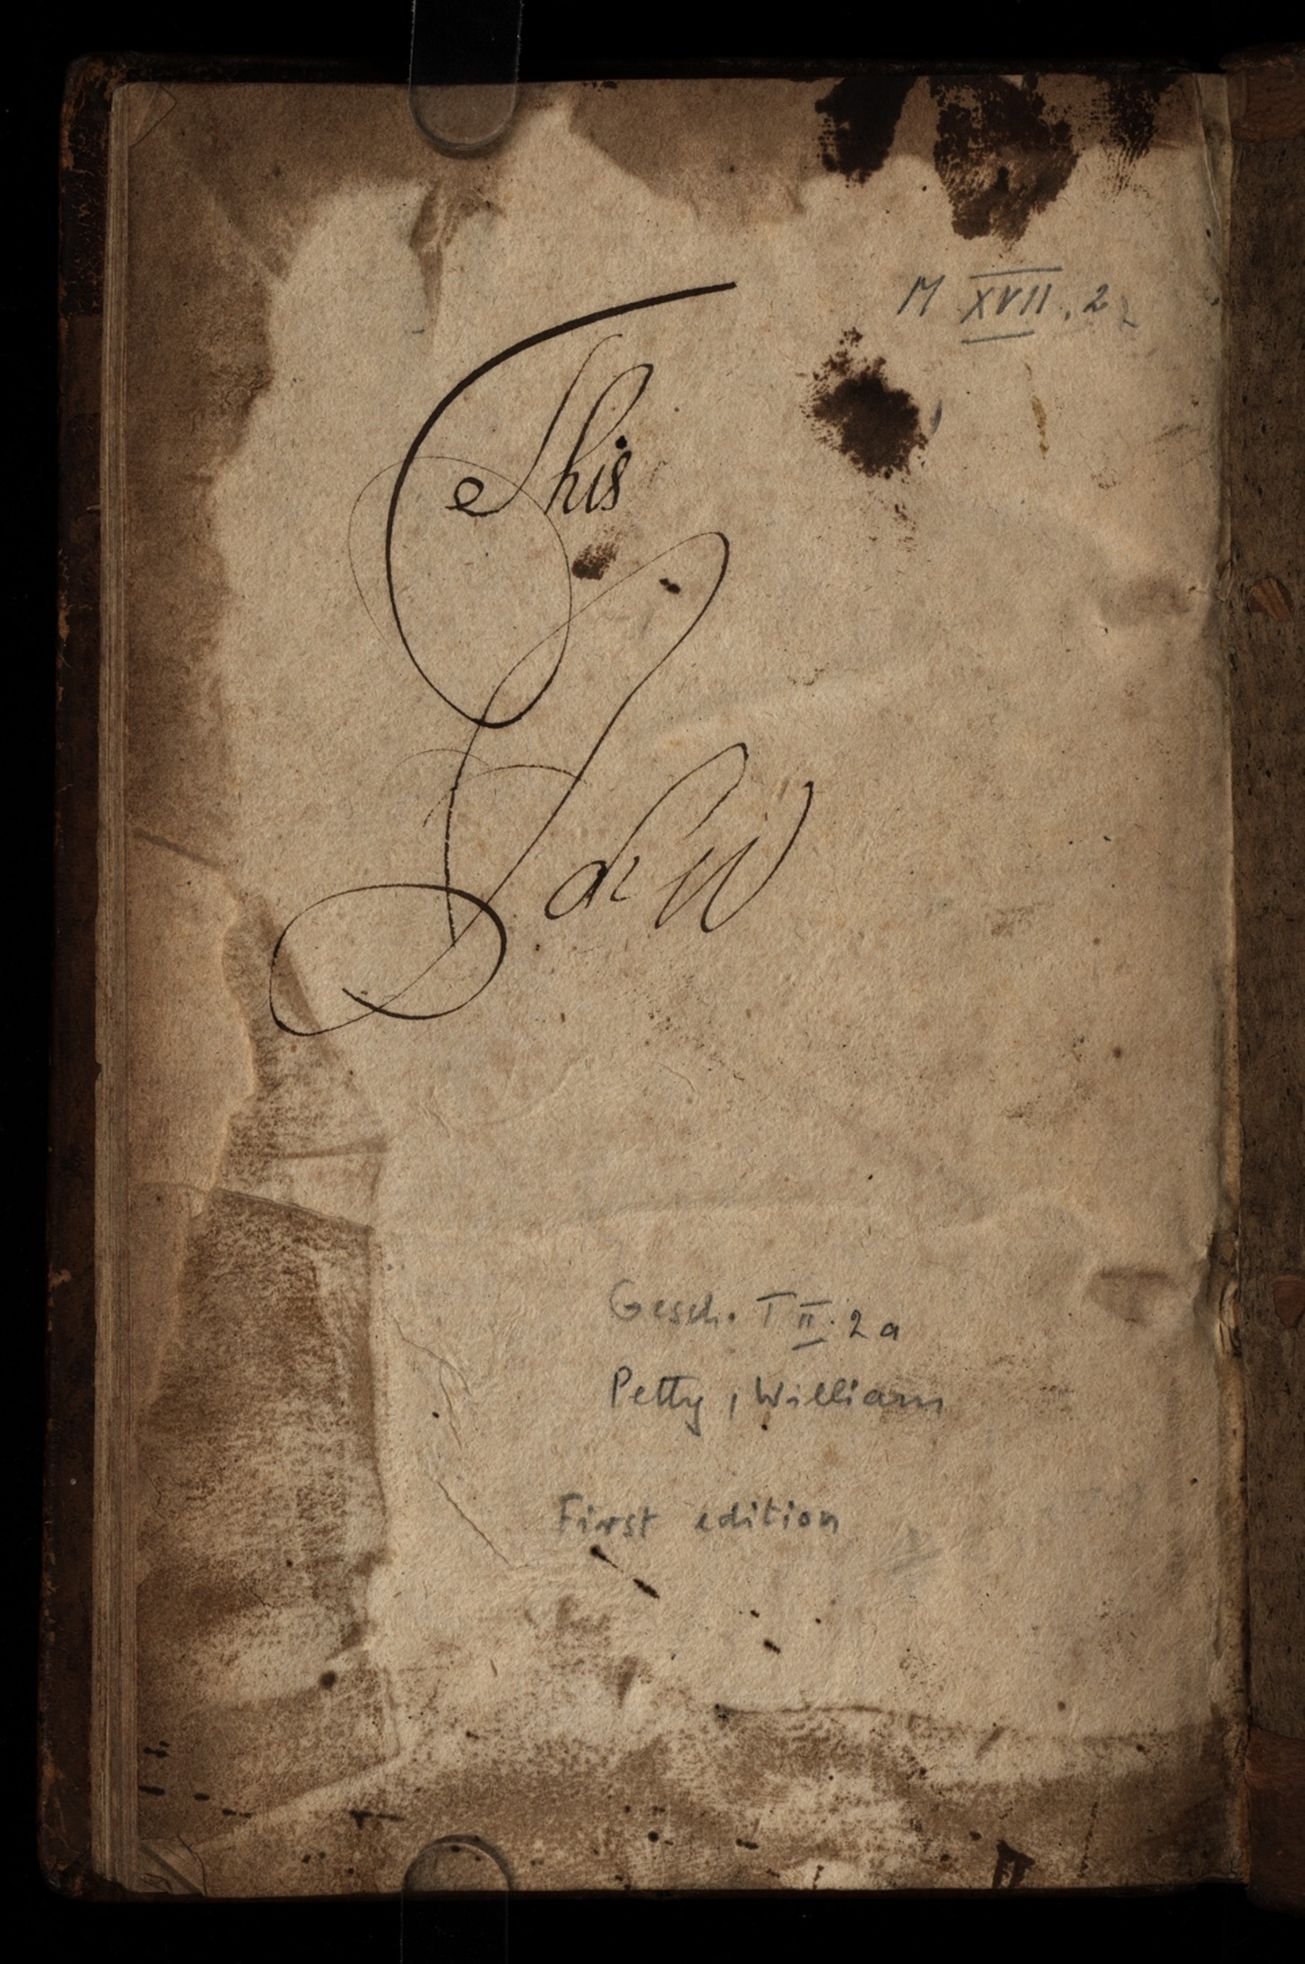 M XVII. 2
This
Gesch. T II. 2a
Petty, William
First edition